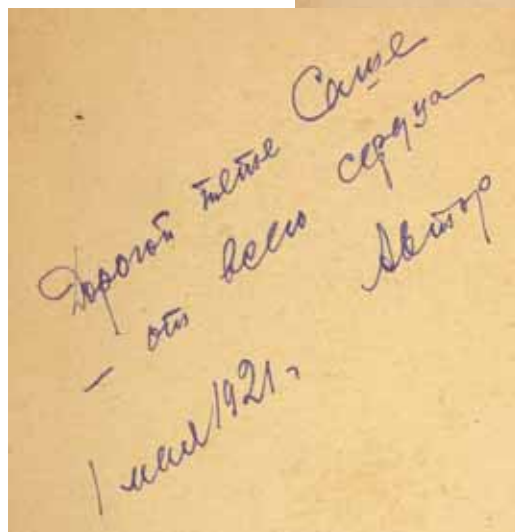 Дорогой тете Саше
– от всего сердца
Автор
1 мая 1921 г